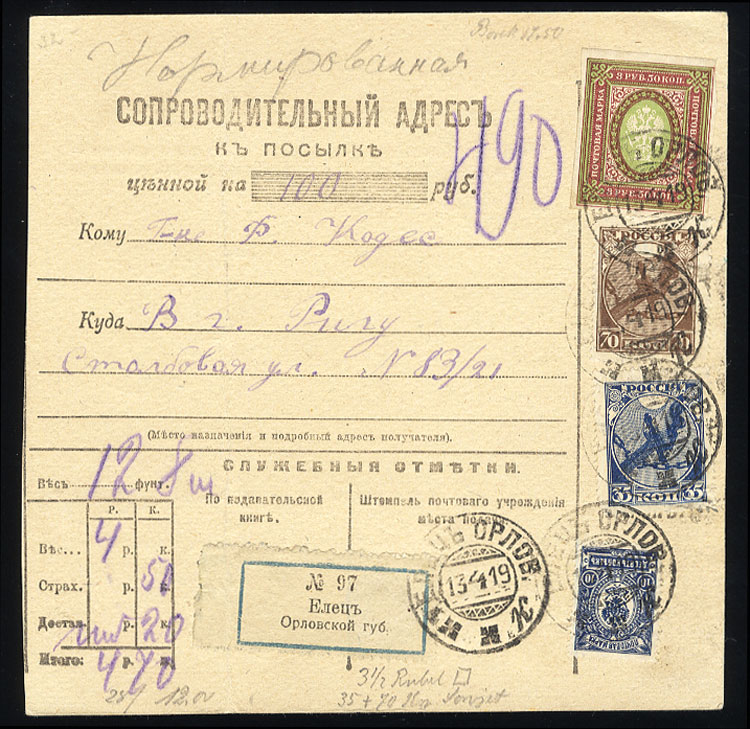 Нормированная
СОПРОВОДИТЕЛЬНЫЙ АДРЕСЪ
КЪ ПОСЫЛКѢ
цѣнной на 100 руб.
490
Кому Г-не Ф. Кодес
Куда В г. Ригу
Столбовая ул. N 83/21
(Мѣсто назначенія и подробный адресъ получателя).
СЛУЖЕБНЫЯ ОТМѢТКИ.
Вѣсъ 12 фунт.
По подавательской книгѣ.
Штемпель почтоваго учрежденія мѣста подачи
Р. К.
Вѣс... 4 р. к.
Страх. р. 50 к.
Достав. р. 20 к.
Итого: 4 р. 70 к.
№ 97
Елецъ
Орловской губ.
ЕЛЕЦЪ ОРЛОВ.
13 4 19
3 РУБ. 50 КОП.
ПОЧТОВАЯ МАРКА
3 РУБ. 50 КОП.
РОССІЯ
70 КОП 70
РОССІЯ
35 КОП 35
10 10
3½ Rubel
35 + 70
12.00